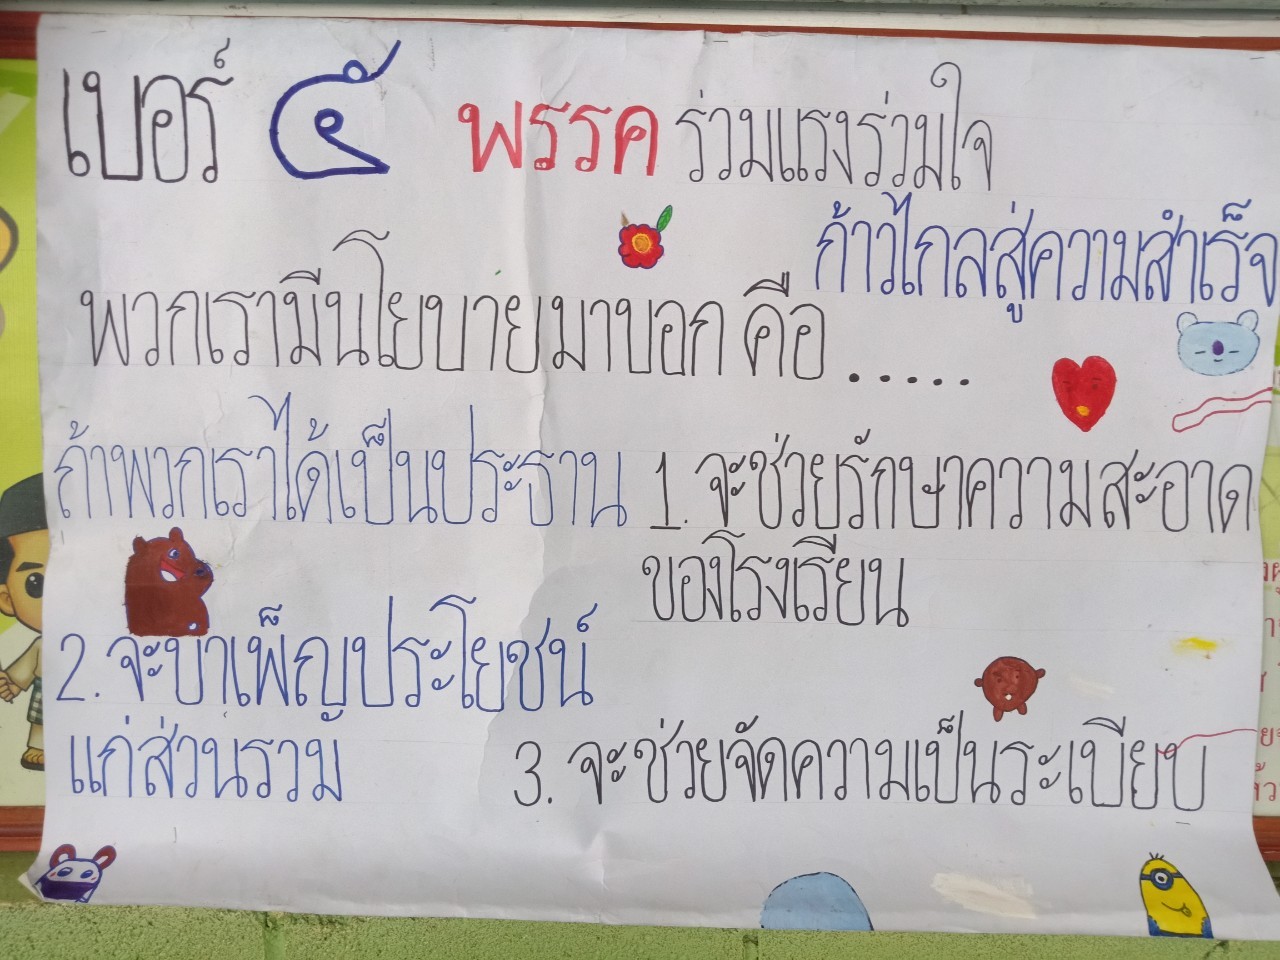 เบอร์ ๕ พรรค ร่วมแรงร่วมใจ
ก้าวไกลสู่ความสำเร็จ
พวกเรามีนโยบายมาบอก คือ.....
ถ้าพวกเราได้เป็นประธาน 1. จะช่วยรักษาความสะอาด
ของโรงเรียน
2. จะบำเพ็ญประโยชน์
แก่ส่วนรวม
3. จะช่วยจัดความเป็นระเบียบ